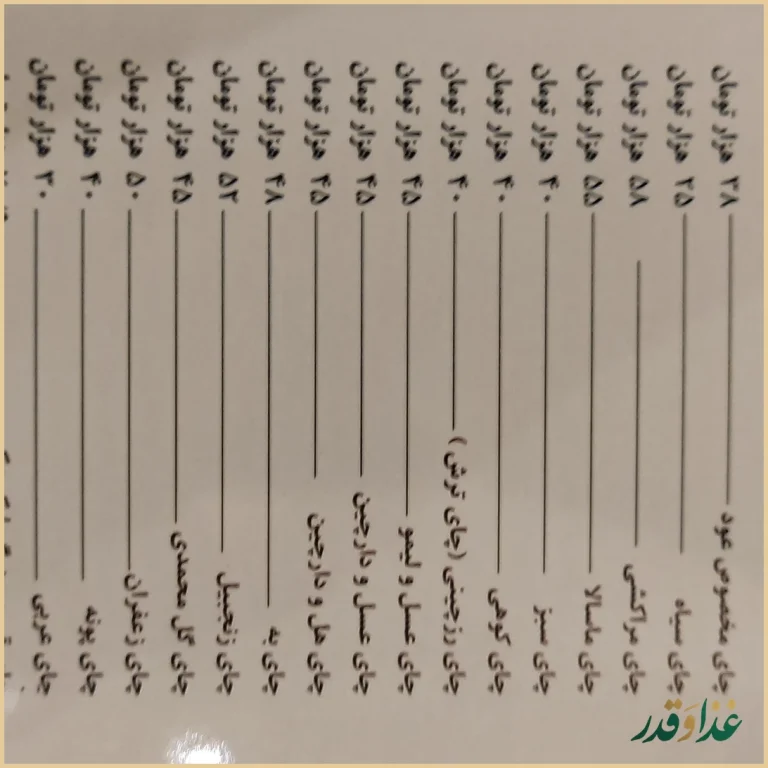 چای مخصوص عود ۳۸ هزار تومان
چای سیاه ۳۵ هزار تومان
چای مراکشی ۵۸ هزار تومان
چای ماسالا ۵۵ هزار تومان
چای سبز ۴۰ هزار تومان
چای کوهی ۴۰ هزار تومان
چای رزچینی (چای ترش) ۴۰ هزار تومان
چای عسل و لیمو ۴۵ هزار تومان
چای عسل و دارچین ۴۵ هزار تومان
چای هل و دارچین ۴۵ هزار تومان
چای به ۴۸ هزار تومان
چای زنجبیل ۵۲ هزار تومان
چای گل محمدی ۴۵ هزار تومان
چای زعفران ۵۰ هزار تومان
چای پونه ۴۰ هزار تومان
چای عربی ۳۰ هزار تومان
غذا و قدر